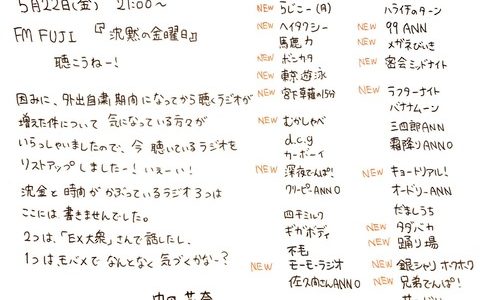 5月22日(金) 21:00〜
FM FUJI 『沈黙の金曜日』
聴こうねー!
因みに、外出自粛期間になってから聴くラジオが
増えた件について 気になっている方々が
いらっしゃいましたので、今 聴いているラジオを
リストアップしましたー! いぇーい!
沈金と時間がかぶっているラジオ3つは
ここには書きませんでした。
2つは、「EX大衆」さんで話したし、
1つは、モバメでなんとなく 気づくかなー?
NEW らじこー(月)
NEW ヘイタクシー
馬鹿力
NEW ポンカタ
NEW 東京遊泳
NEW 宮下草薙の15分
NEW むかしゃべ
d.c.g
カーボーイ
NEW 深夜でんぱ!
クリーピーANN0
四千ミルク
ギガボディ
不毛
NEW モーモーラジオ
佐久間さんANN0
ハライチのターン
NEW 99 ANN
NEW メガネびいき
NEW 密会ミッドナイト
NEW ラフターナイト
バナナムーン
三四郎ANN
霜降りANN0
NEW キョートリアル!
オードリーANN
だましうち
NEW タダバカ
NEW 踊り場
NEW 銀シャリ ホクホク
NEW 兄弟でんぱ!